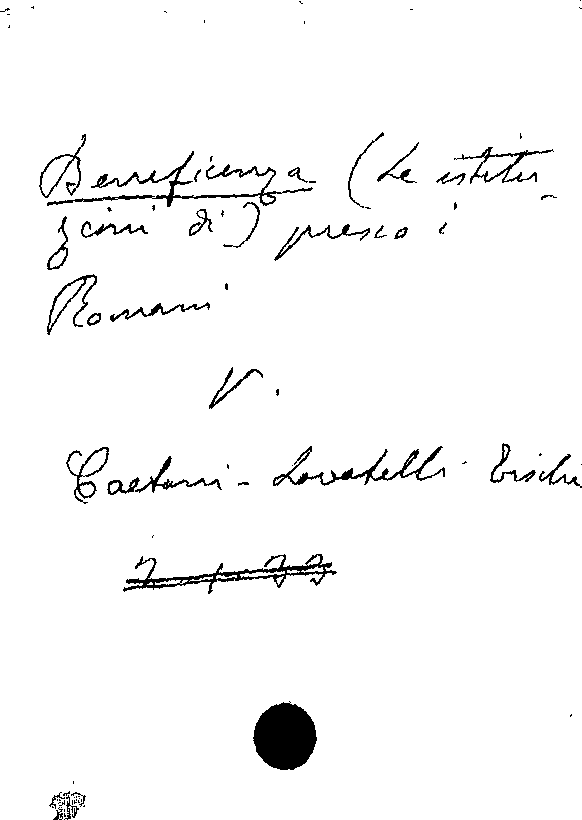 Beneficenza (Le istitu-
zioni di) presso i
Romani
V.
Caetani - Lovatelli Ersilia